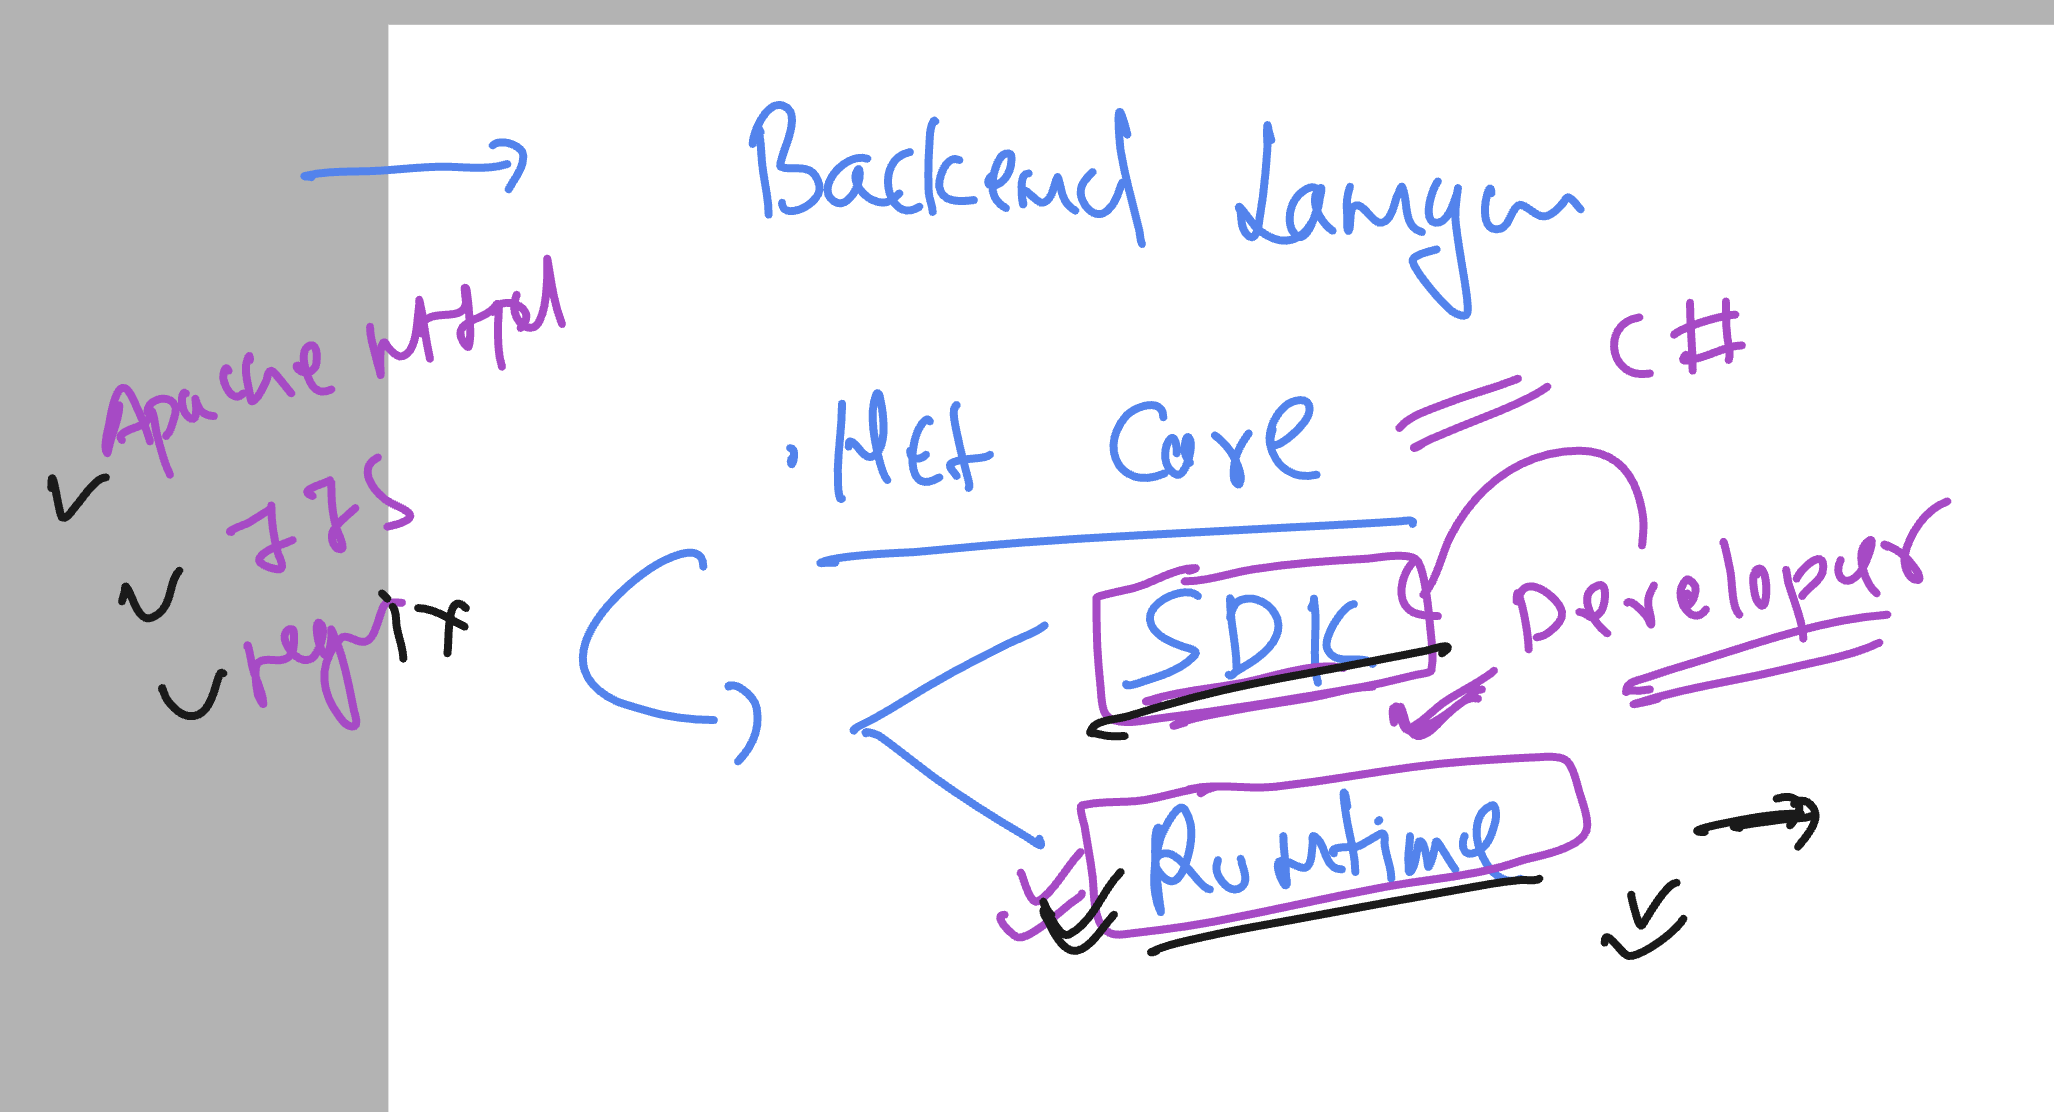 Backend Langu
Apache httpd
C#
.NEt Core
IIS
SDK
Developer
Runtime